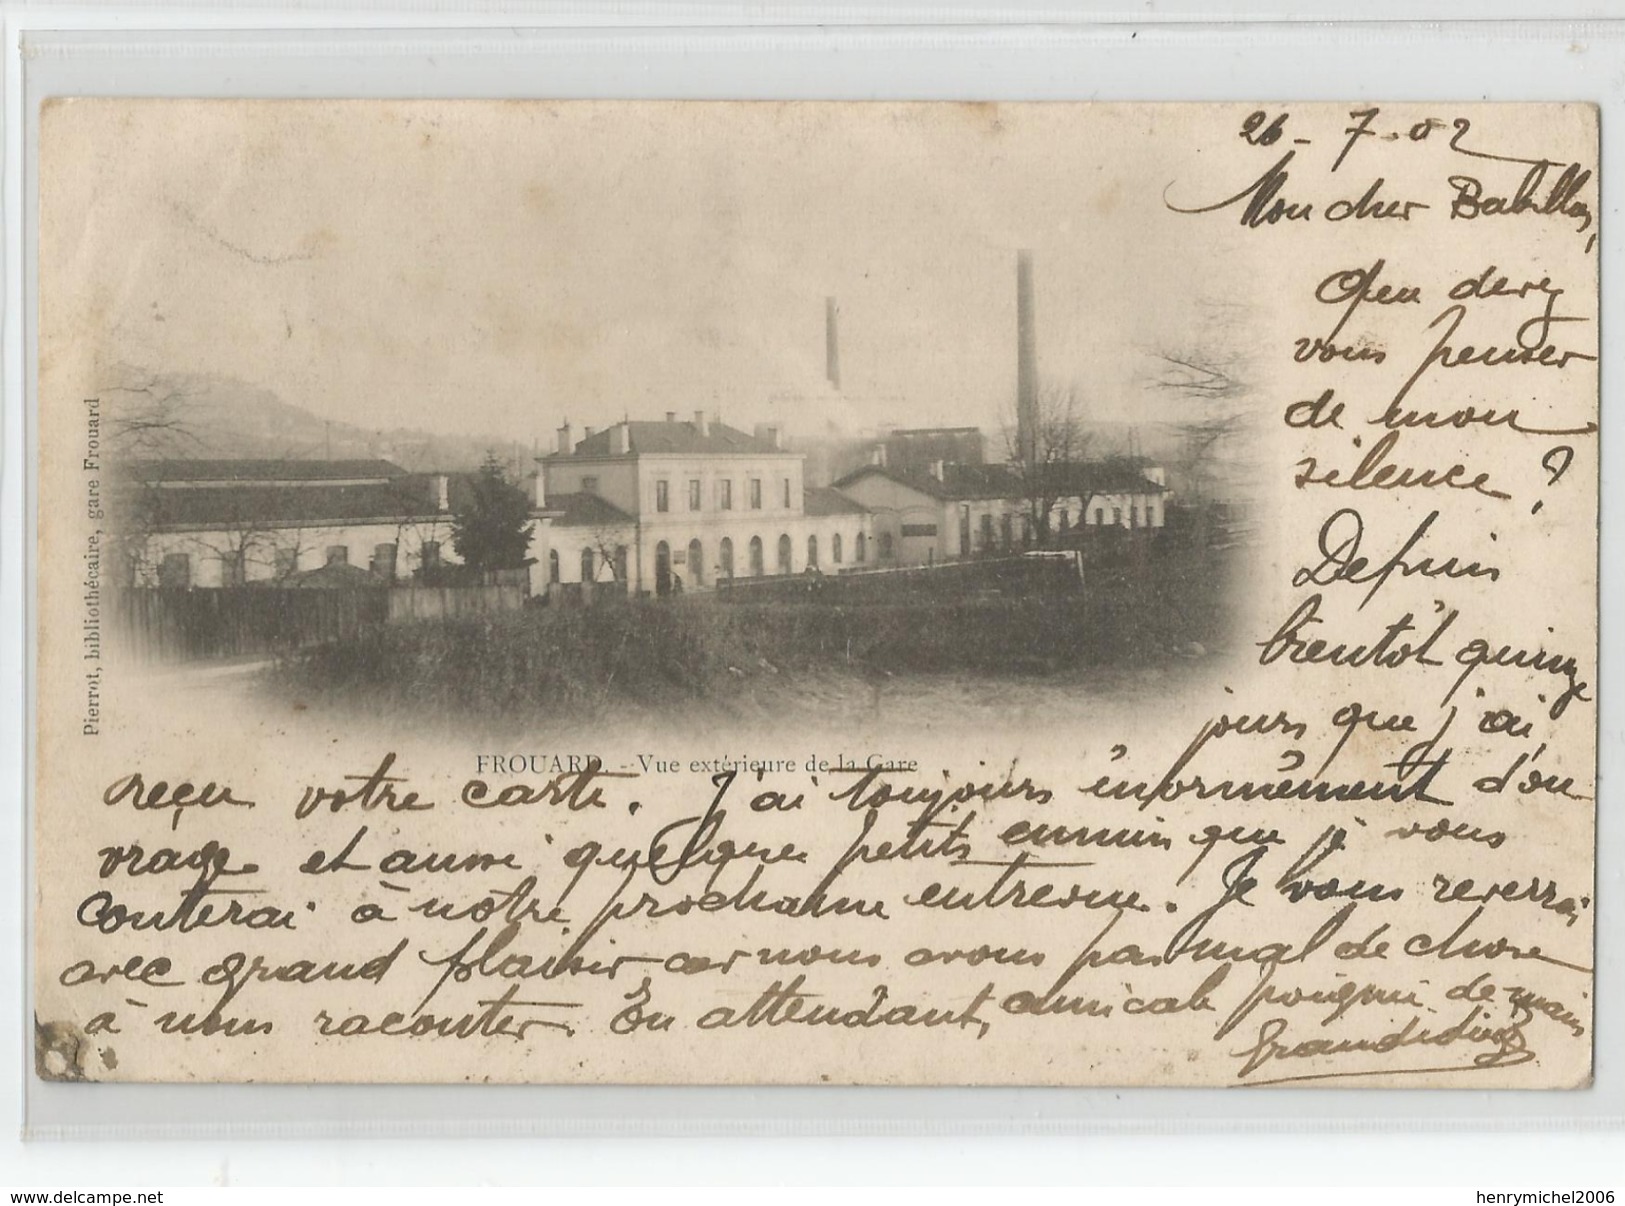 26-7-02
Mon cher Babillon,
Que devez
vous penser
de mon
silence ?
Depuis
bientôt quinze
jours que j'ai
Pierrot, bibliothécaire, gare Frouard
FROUARD. - Vue extérieure de la Gare
reçu votre carte. J'ai toujours énormément d'ou
vrage et aussi quelque petits ennuis que je vous
conterai à notre prochaine entrevue. Je vous reverrai
avec grand plaisir car nous avons pas mal de chose
à nous raconter. En attendant, amicale poignée de mains
www.delcampe.net
henrymichel2006